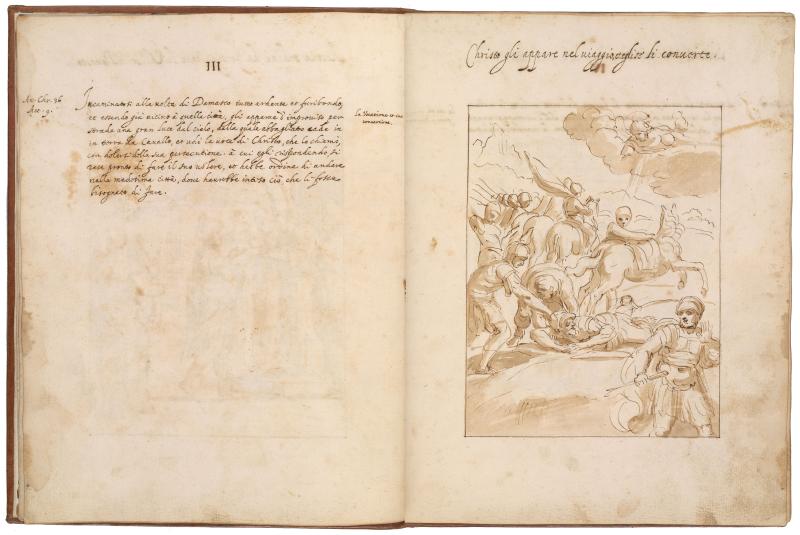 III
An. Chr. 36
Act. 9.
Incaminatosi alla volta di Damasco tutto ardente et furibondo,
et essendo già vicino à quella città, gli apparue d'improuiso per
strada una gran luce dal cielo, dalla quale abbagliato cade in
in terra da Cauallo, et udì la voce di Christo, che lo chiamò,
con dolersi della sua persecutione. à cui egli rispondendo, si
rese pronto di fare il suo uolere, et hebbe ordine di andare
nella medesima città, doue haurebbe inteso ciò, che li fosse
bisognato di fare.
La Vocatione et sua
conuersione.
Christo gli appare nel uiaggio, et egli si conuerte.